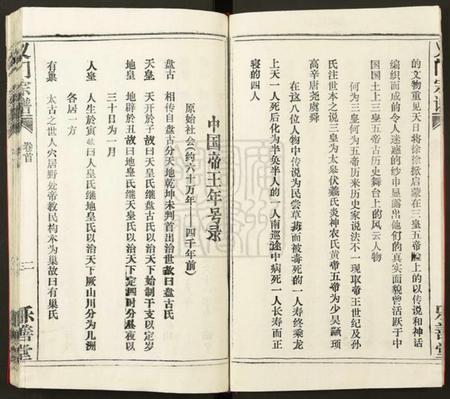 义门宗谱
的文物重见天日将徐徐掀启蒙在三皇五帝脸上的以传说和神话
编织而成的令人迷离的纱巾显露出他们的真实面貌曾活跃于中
国国土上三皇五帝古历史舞台上的风云人物
何为三皇何为五帝历来历史家说法不一现取帝王世纪及孙
氏注世本之说三皇为太皋伏羲氏炎神农氏黄帝五帝为少吴颛顼
高辛唐尧虞舜
在这八位人物中传说为民尝草药而被毒死的一人寿终乘龙
上天一人死后化为半鱼半人的一人南巡途中病死一人长寿而正
寝的四人
乐善堂
中国帝王年号录
原始社会（约六十万年——四千年前）
盘古 相传自盘古分天地乾坤未判首出治世故曰盘古氏
天皇 天开于子故曰天皇氏继盘古氏以治天下始制干支以定岁
地皇 地辟於丑故曰地皇氏继天皇氏以治天下定四时分昼夜以
三十日为一月
人皇 人生於寅故曰人皇氏继地皇氏以治天下厥山川分为九洲
各居一方
有巢 太古之世人穴居野处帝教民构木为巢故曰有巢氏
义门宗谱
卷首
二
乐善堂